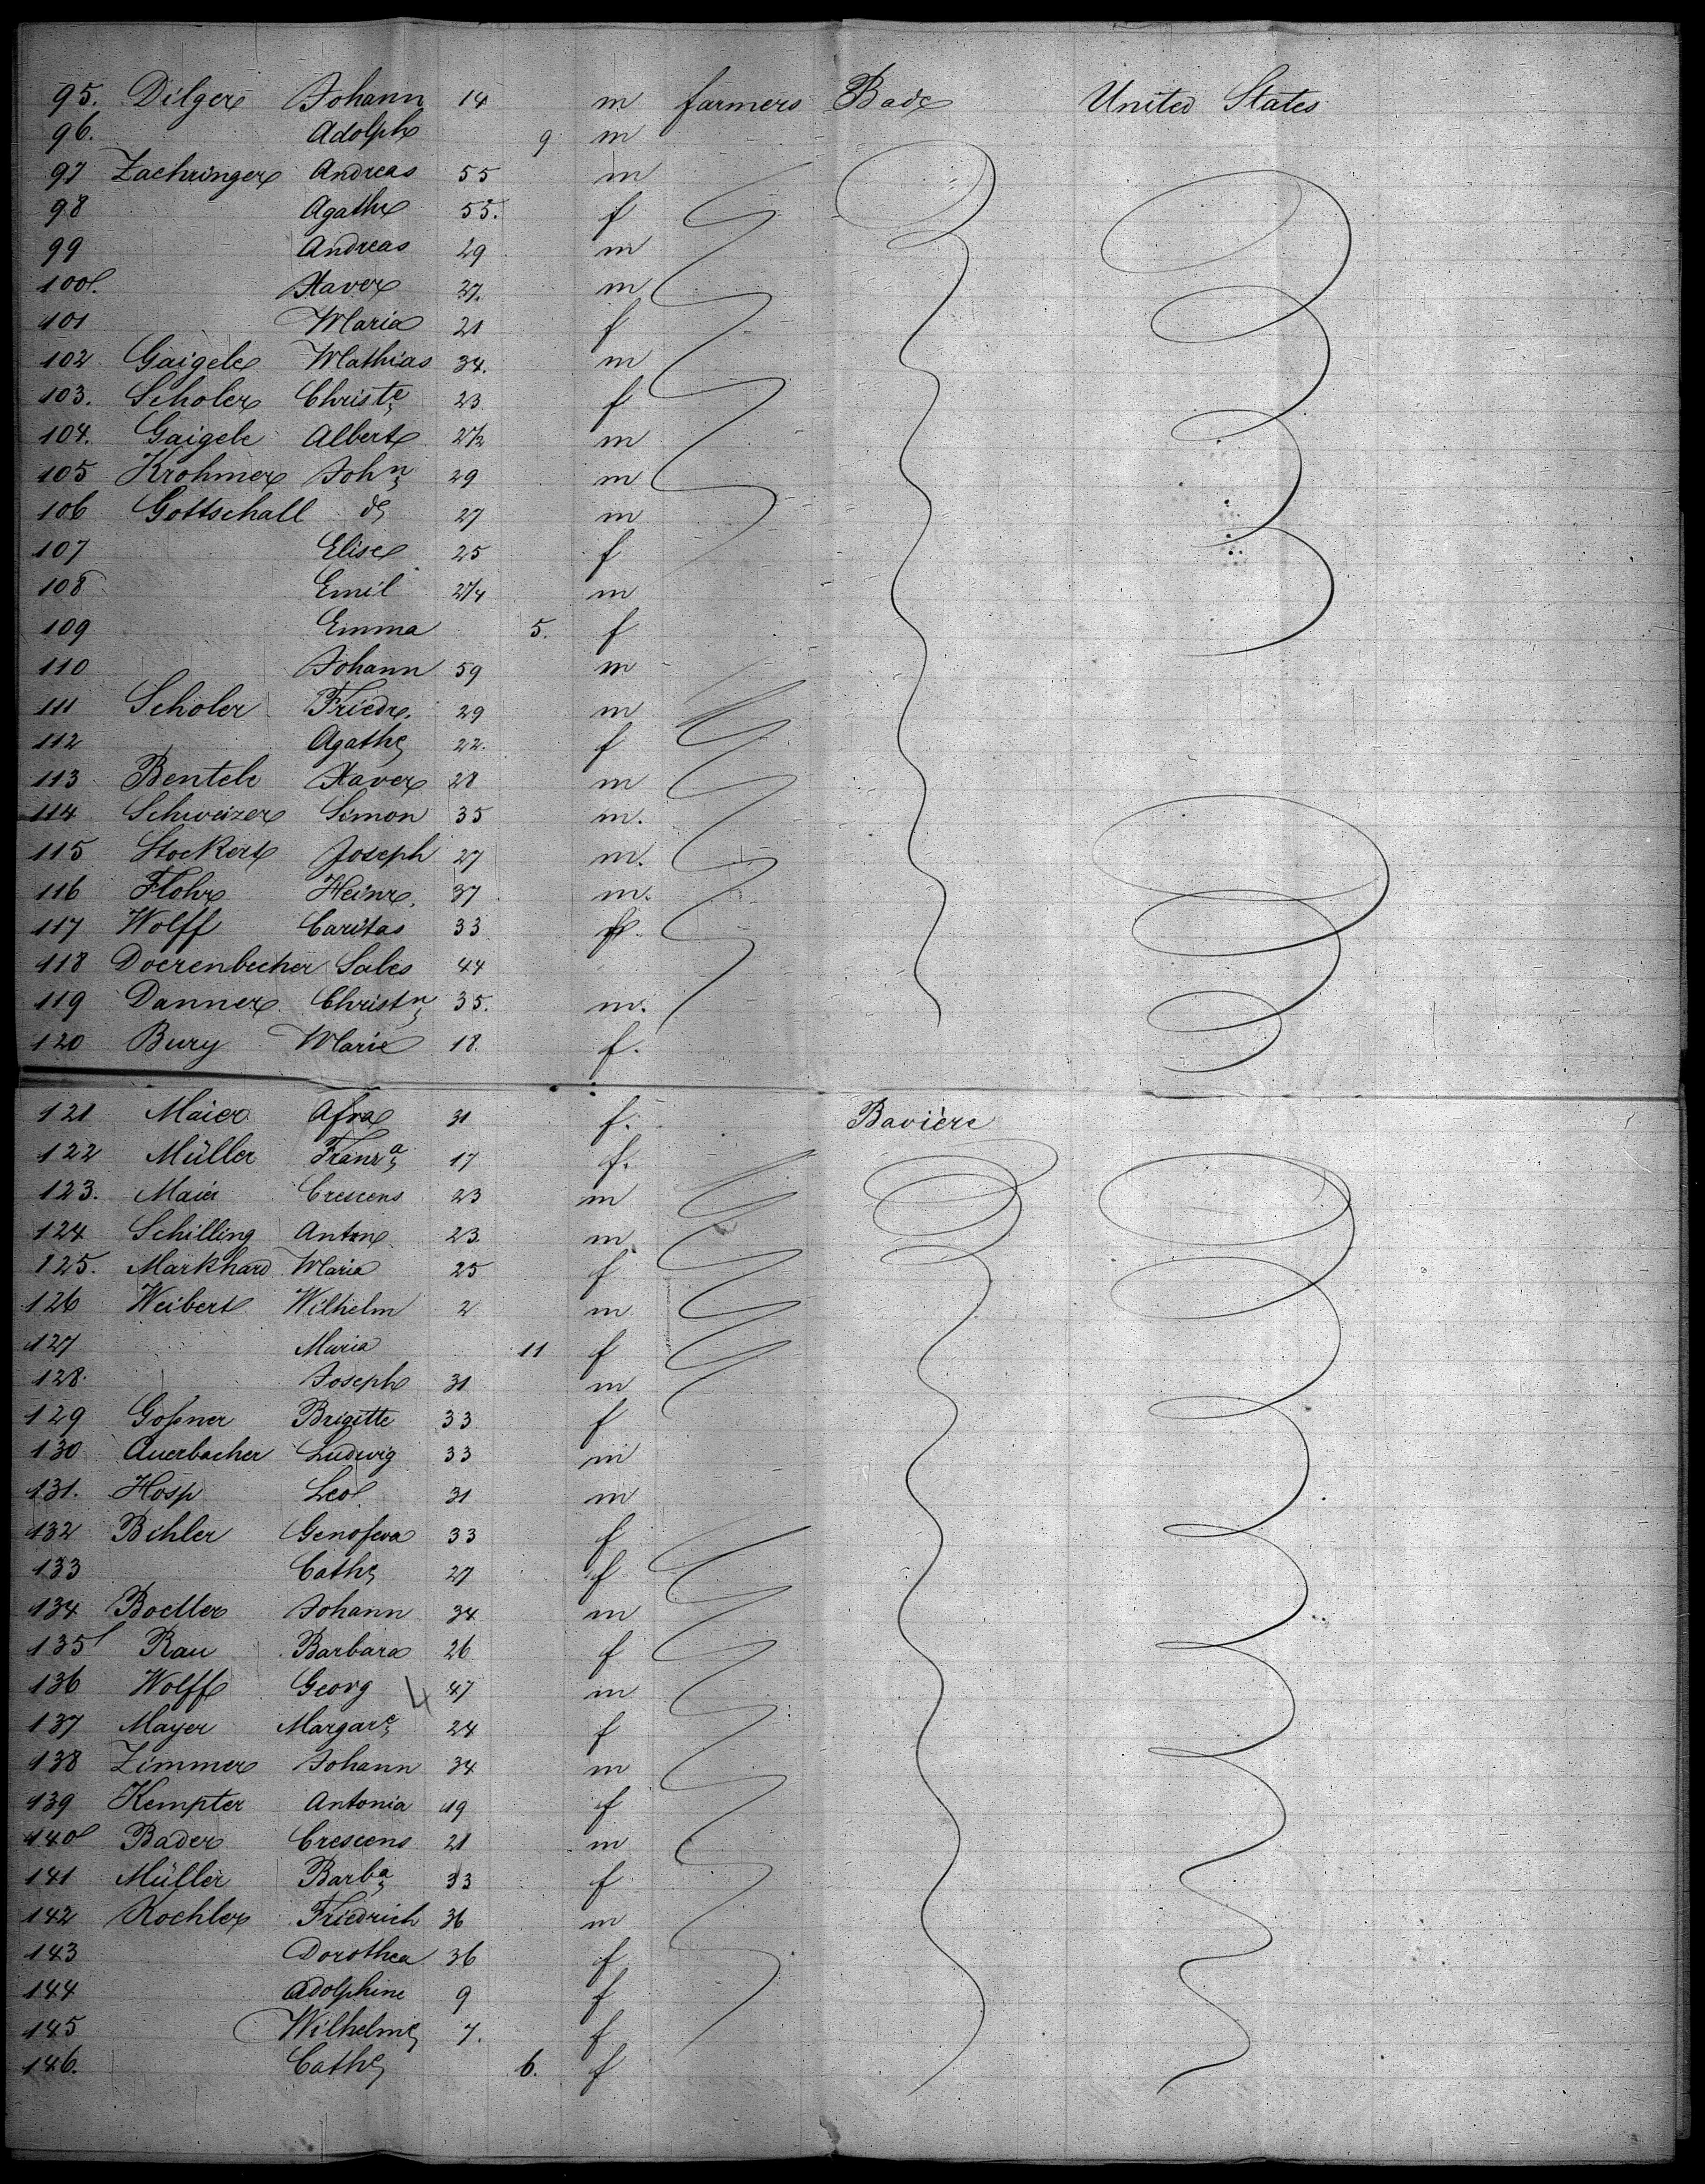 95. Dilger Johann 14 m farmers Bade United States
96. Adolph 9 m
97 Zaehringer Andreas 55 m
98 Agathe 55. f
99 Andreas 29 m
100. Xaver 27. m
101 Maria 21 f
102 Gaigele Mathias 34. m
103. Scholer Christe 23 f
104. Gaigele Albert 2 1/2 m
105 Krohmer John 29 m
106 Gottschall do 27 m
107 Elise 25 f
108 Emil 2 1/4 m
109 Emma 5. f
110 Johann 59 m
111 Scholer Friedr. 29 m
112 Agathe 22. f
113 Bentele Xaver 28 m
114 Schweizer Simon 35 m.
115 Stockert Joseph 27 m.
116 Flohr Heinr. 37 m.
117 Wolff Caritas 33 f.
118 Doerenbecher Sales 44
119 Danner Christn 35. m.
120 Bury Marie 18. f.
121 Maier Afra 31 f. Bavière
122 Müller Franza 17 f.
123. Maier Crescens 23 m
124 Schilling Anton 23 m.
125. Markhard Maria 25 f
126 Weibert Wilhelm 2 m
127 Maria 11 f
128. Joseph 31 m
129 Goßner Brigitte 33 f
130 Auerbacher Ludwig 33 m
131. Hosp Leo 31 m
132 Bihler Genofeva 33 f
133 Cathe 27 f
134 Boetller Johann 34 m
135 Rau Barbara 26 f
136 Wolff Georg 47 m
137 Mayer Margare 24 f
138 Zimmer Johann 34 m
139 Kempter Antonia 19 f
140 Bader Crescens 21 m
141 Müller Barba 33 f
142 Kochler Friedrich 36 m
143 Dorothea 36 f
144 Adolphine 9 f
145 Wilhelme 7. f
146. Cathe 6. f